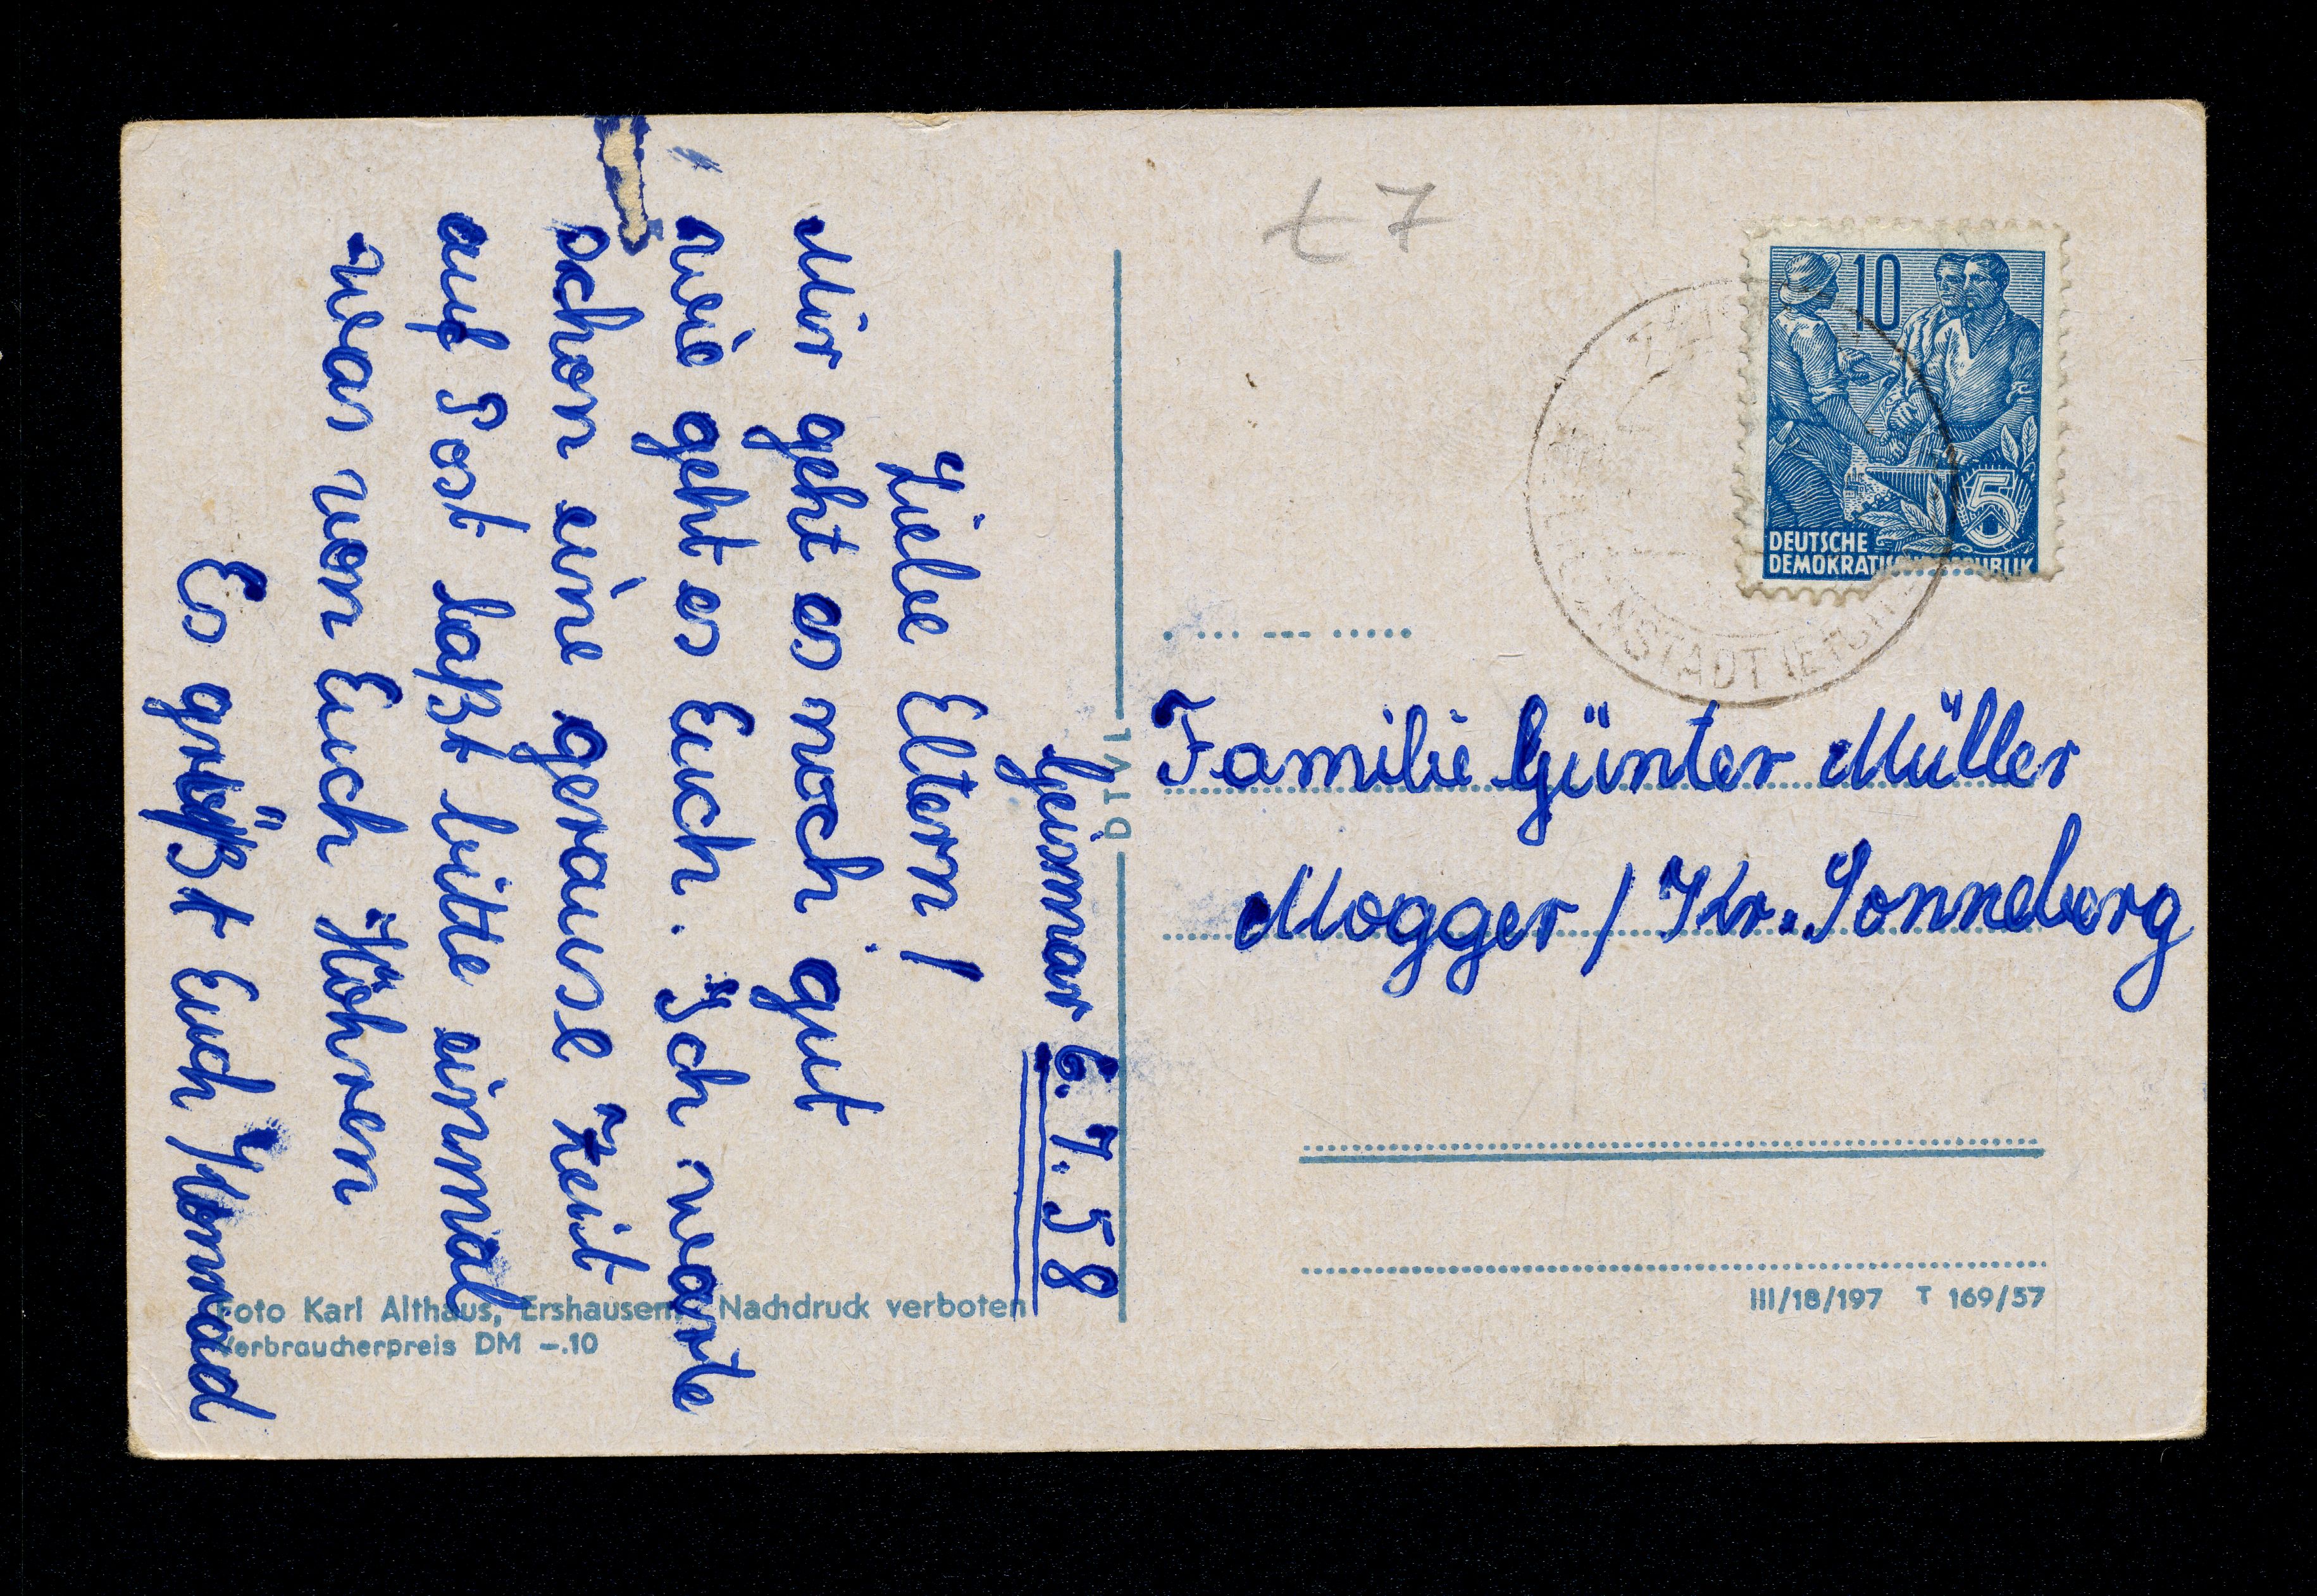 Geismar 6. 7. 58
Liebe Eltern!
Mir geht es noch gut
wie geht es Euch. Ich warte
schon eine gerause Zeit
auf Post laßt bitte einmal
was von Euch Höhren
Es grüßt Euch Konrad
Foto Karl Althaus, Ershausen Nachdruck verboten
Verbraucherpreis DM –.10
t 7
10
5
DEUTSCHE
DEMOKRATISCHE REPUBLIK
Familie Günter Müller
Mogger / Kr. Sonneberg
III/18/197 T 169/57